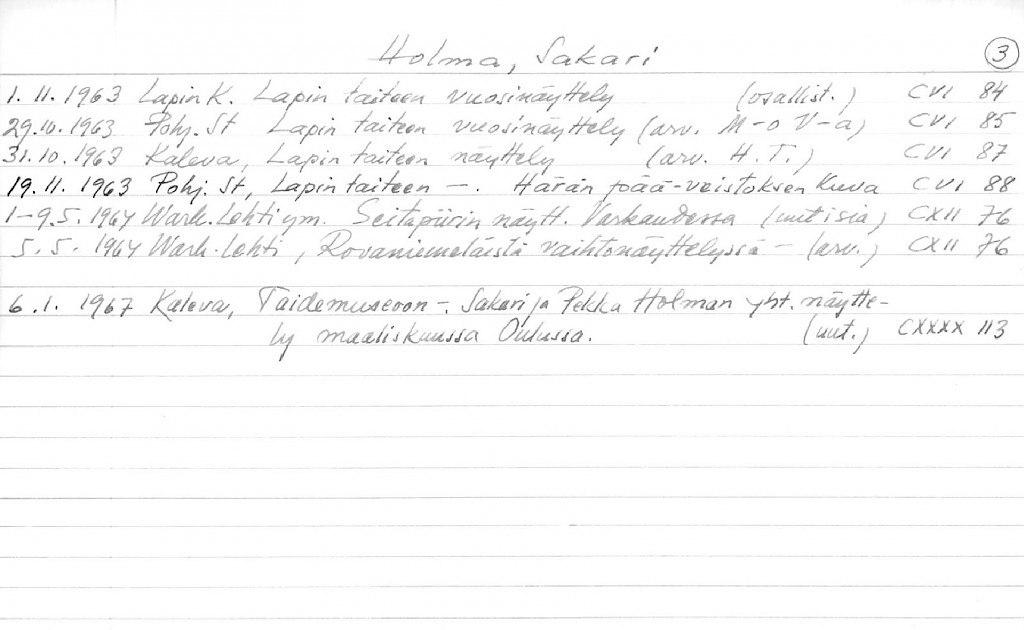 Holma, Sakari
3
1. 11. 1963 Lapin K. Lapin taiteen vuosinäyttely (osallist.) CVI 84
29.10.1963 Pohj. St Lapin taiteen vuosinäyttely (arv. M-o V-a) CVI 85
31.10.1963 Kaleva, Lapin taiteen näyttely (arv. H.T.) CVI 87
19.11.1963 Pohj. St, Lapin taiteen —. Härän pää-veistoksen kuva CVI 88
1-9.5.1964 Wark. Lehti ym. Seitapiirin näytt. Varkaudessa (uutisia) CXII 76
5.5. 1964 Wark. Lehti, Rovaniemeläistä vaihtonäyttelyssä — (arv.) CXII 76
6.1. 1967 Kaleva, Taidemuseoon —. Sakari ja Pekka Holman yht. näytte-
ly maaliskuussa Oulussa. (uut.) CXXXX 113